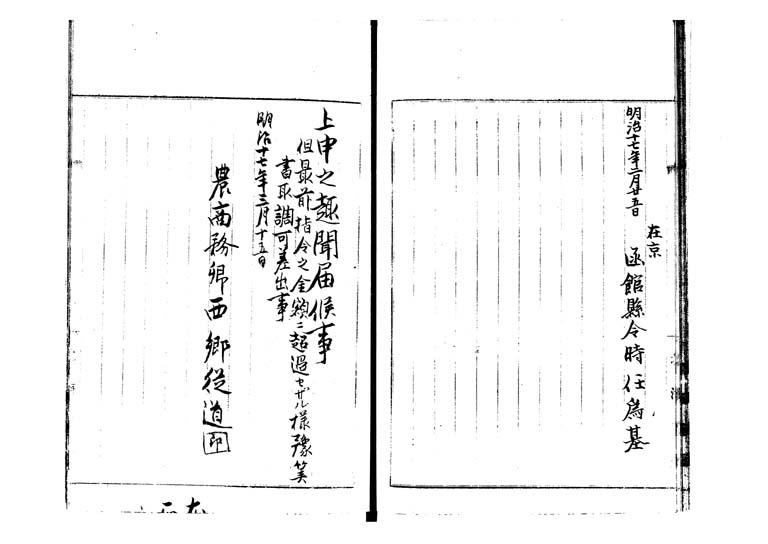 明治十七年二月廿五日
在京
函館縣令時任為基
上申之趣聞届候事
但最前指令之金額ニ超過セザル様豫筭
書取調可差出事
明治十七年三月十五日
農商務卿西郷従道印